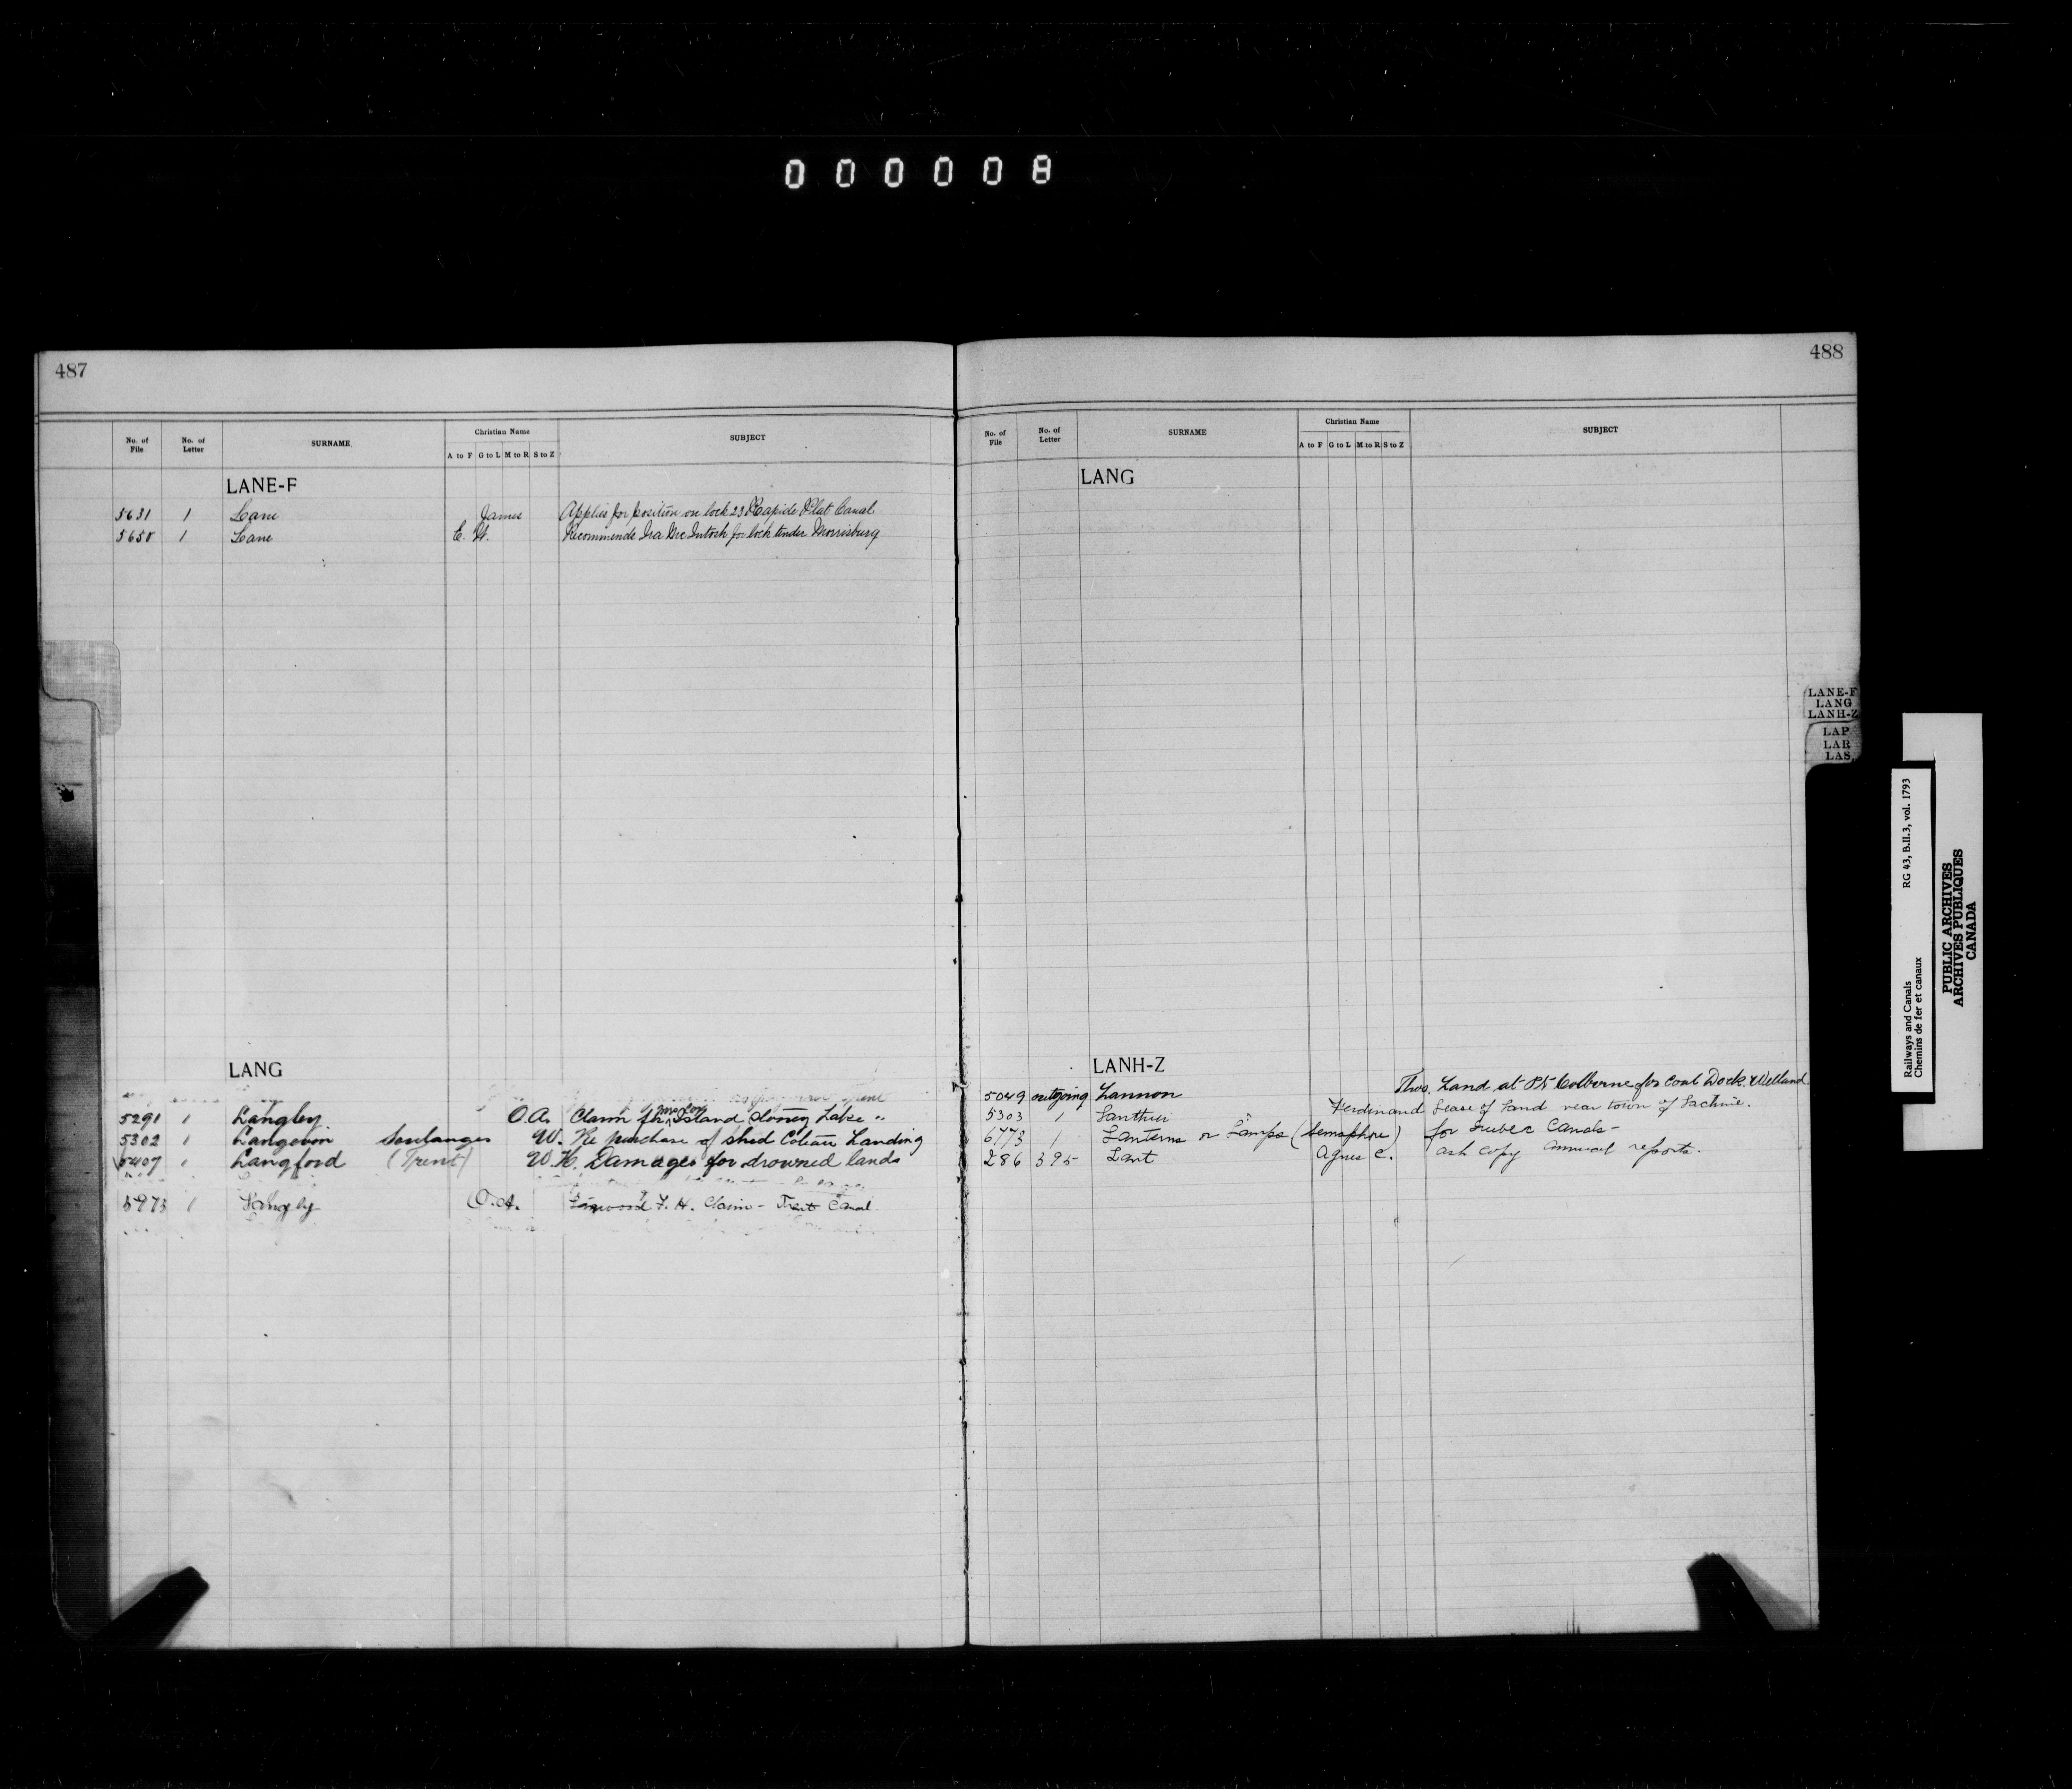 000008
487
No. of File No. of Letter SURNAME Christian Name A to F G to L M to R S to Z SUBJECT
LANE-F
5631 1 Lane James Applies for position on lock 23 Rapide Plat Canal
5658 1 Lane E. W. Recommends Ira McIntosh for lock tender Morrisburg
LANG
5291 1 Langley O.A. Claim for Island Stoney Lake "
5302 1 Langevin Soulanges W. Re purchase of shed Coteau Landing
5407 1 Langford (Trent) W.H. Damages for drowned lands
5973 1 Langley O.A. F. H. Claim - Trent Canal.
488
No. of File No. of Letter SURNAME Christian Name A to F G to L M to R S to Z SUBJECT
LANG
LANH-Z
5049 outgoing Lannon Thos. Land at Pt Colborne for Coal Dock. Welland.
5303 1 Lanthier Ferdinand Lease of land near town of Lachine.
6773 1 Lanterns or Lamps (Semaphore) for Quebec Canals-
286 395 Lant Agnes C. ask copy annual reports.
LANE-F
LANG
LANH-Z
LAP
LAR
LAS
Railways and Canals RG 43, B.II.3, vol. 1793
Chemins de fer et canaux
PUBLIC ARCHIVES
ARCHIVES PUBLIQUES
CANADA